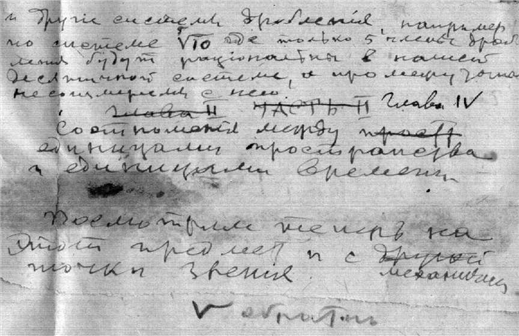 и другие системы дробления, например
по системе √10 где только 5 членов дроб
ления будут рациональны в нашей
десятичной системе, а промежуточные
несоизмеримы с нею.
Глава II ЧАСТЬ II Глава IV
Соотношения между прост
единицами пространства
и единицами времени
Посмотрим теперь на
этот предмет и с другой
точки зрения. механической
V обратн